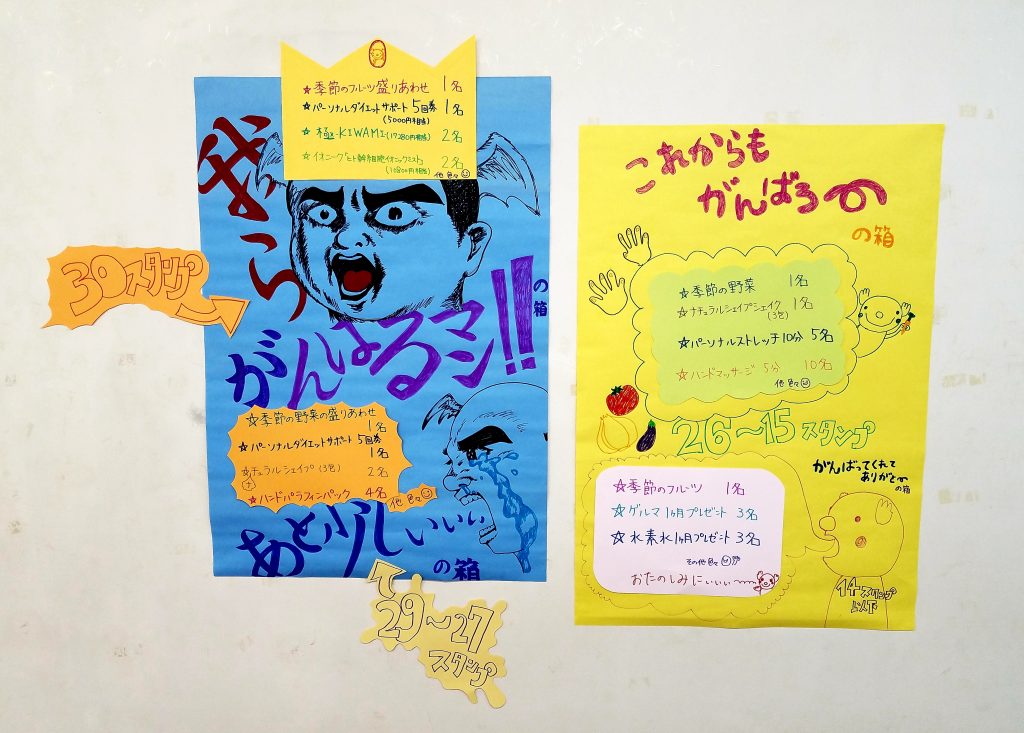 ☆季節のフルーツ盛りあわせ 1名
☆パーソナルダイエットサポート 5回券 1名
(5000円相当)
☆極-KIWAMI-(17280円相当) 2名
☆イオニーグヒト幹細胞イオニックミスト 2名
(10800円相当)
他 色々
我ら
がんばるマン!!
の箱
30スタンプ
☆季節の野菜の盛りあわせ
1名
☆パーソナルダイエットサポート 5回券
1名
☆ナチュラルシェイプ(3包) 2名
☆ハンドパラフィンパック 4名
他 色々
あと少しぃぃぃ
の箱
29〜27
スタンプ
これからも
がんばろ〜
の箱
☆季節の野菜 1名
☆ナチュラルシェイプシェイク 1名
(3包)
☆パーソナルストレッチ10分 5名
☆ハンドマッサージ 5分 10名
他 色々
26〜15スタンプ
がんばってくれて
ありがと〜
の箱
☆季節のフルーツ 1名
☆ゲルマ1ヶ月プレゼント 3名
☆水素水1ヶ月プレゼント 3名
その他 色々
おたのしみにぃぃぃ〜
14スタンプ
以下